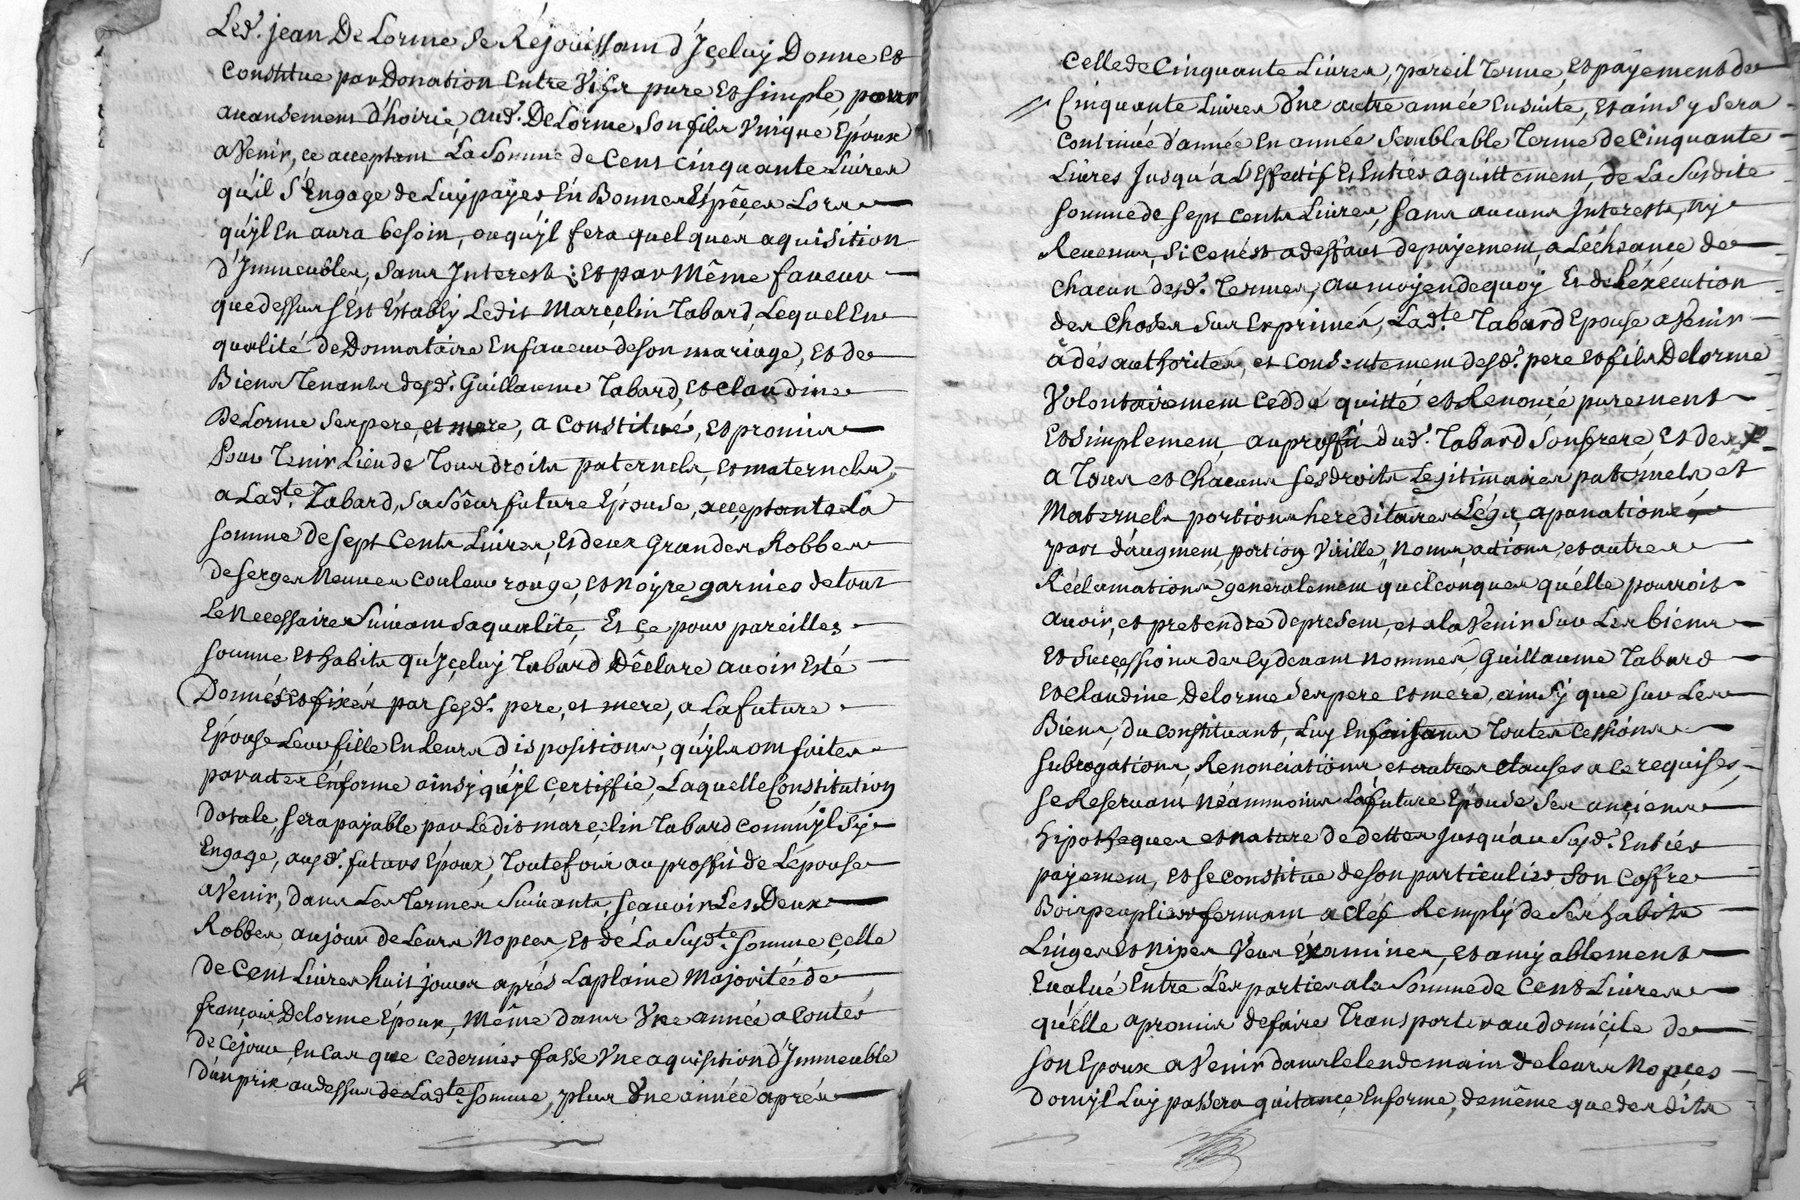 Led.t jean De Lorme Se Réjouissant d'Içeluy Donne Et
Constitue par Donation Entre Vifs pure Et Simple, pour
avansement d'hoirie, aud.t DeLorme Son fils Vnique Epoux
aVenir, ce acceptant La Somme de Cent Cinquante Livres
qu'il S'Engage de Luy payer En Bonnes Espêçes Lors
qu'yl En aura besoin, ou qu'yl fera quelques aquisition
d'Immeubles, Sans Interest; Et par Même faveur
que dessus s'Est Estably Ledit Marçelin Tabard, Lequel En
qualité de Donnataire En faveur de son mariage, Et de
Biens Tenants desd.t Guillaume Tabard, Et Claudine
DeLorme Ses pere, et mere, a Constitué, Et promis
Pour Tenir Lieu de Tous droits paternels, Et maternels,
a Lad.te Tabard, Sa Sôeur future Epouse, acçeptante La
Somme De Sept Cents Livres, Et deux Grandes Robbes
de Serges Neuves Couleur rouge, Et Noire garnies de tout
Le Necessaire Suivant Sa qualité, Et çe pour pareilles
Somme Et habits qu'Içeluy Tabard Déclare avoir Esté
Donnés Et fixés par Sesd.t pere, et mere, a La future
Epouse Leur fille En Leurs dispositions, qu'yls ont faites
par actes En forme ainsy qu'yl Certiffie, Laquelle Constitution
Dotale, Sera payable par Ledit marçelin Tabard Comm'yl S'y
Engage, ausd.t futurs Epoux, Toutefois au proffit de L'épouse
aVenir, dans Les Termes Suivants, Sçavoir Les Deux
Robbes, au jour de Leurs Nopces, Et de La Susd.te Somme, Çelle
De Cent Livres huit jours aprés La plaine Majorité de
françois Delorme Epoux, Même dans Vne année a Conter
De Cejour, En Cas que ce dernier fasse Vne aquisition d'Immeuble
D'un prix au dessus de Lad.te Somme, plus Vne année aprés
Celle de Cinquante Livres, pareil Terme, Et payement de
Cinquante Livres d'Vne autre année En suite, Et ainsy Sera
Continué d'année En année Semblable Terme de Cinquante
Livres Jusqu'á L'Effectif Et Entier aquittement, de La Susdite
Somme de Sept Cents Livres, Sans aucuns Interests, ny
Revenus, Si ce n'est a deffaut de payement, a L'écheance de
Chacun desd.t Termes, au moyen de quoy Et de L'éxécution
des Choses Sus Exprimés, Lad.te Tabard Epouse aVenir
á dés authorités, et Consentement desd.t pere Et fils Delorme
Volontairement Ceddé quitté et Renonçé purement
Et Simplement, au proffit dud.t Tabard Son frere, Et des
a Tous et Chacuns Sés droits Legitimaires paternels et
Maternels portions hereditaires Légs, apanation
part d'augment, portion Virille, Noms, actions, et autres
Réclamations generalement quelconques qu'elle pourroit
avoir, et pretendre de present, et a la Venir Sur Les biens
Et Sucçessions des Cy devant Nommés, Guillaume Tabard
Et Claudine Delorme Ses pere et mere, ainsy que Sur Les
Biens, du Constituant, Luy En faisant Toutes Cessions
Subrogations, Renonciations, et autres Clauses a ce requises,
Se Reservant Néammoins La future Epouse Ses ançiens
hipotheques et nature de dettes Jusqu'au Susd.t Entier
payement, et se constitue de son particulier Son Coffre
Bois peuplier fermant a Clef Remply de Ses habits
Linges Et Nipes, Veus Examines, et amyablement
Evalué Entre Les parties a la Somme de Cent Livres
qu'élle a promis de faire Transporter au domiçile de
Son Epoux aVenir dans le lendemain de leurs Nopces
Dont yl Luy passera quitance En forme, de même que desdits